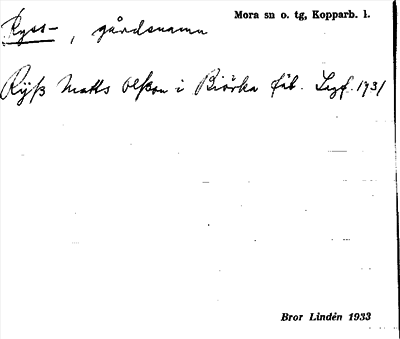 Ryss-, gårdsnamn
Mora sn o. tg, Kopparb. l.
Rÿß Matts Olsson i Biörka fäb. 1731
Bror Lindén 1933